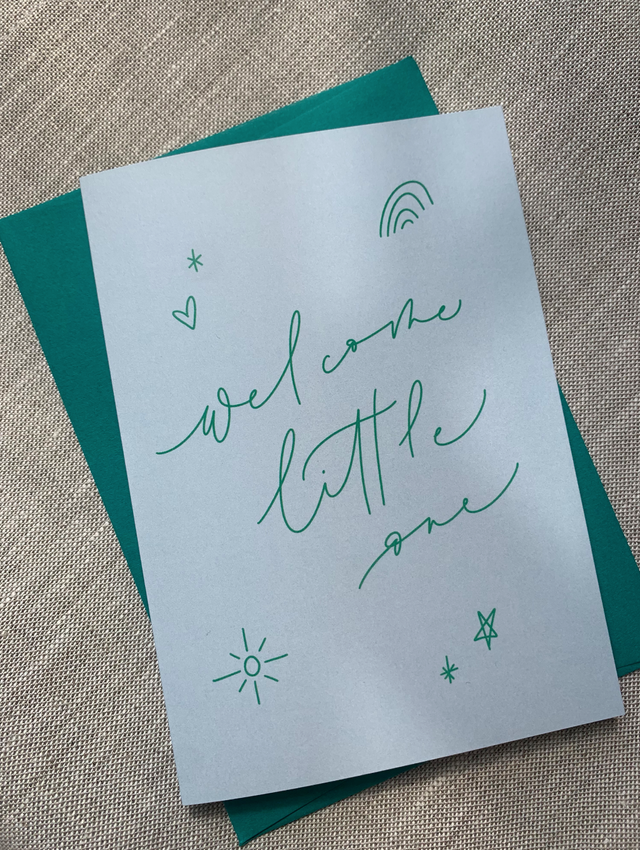 welcome
little
one